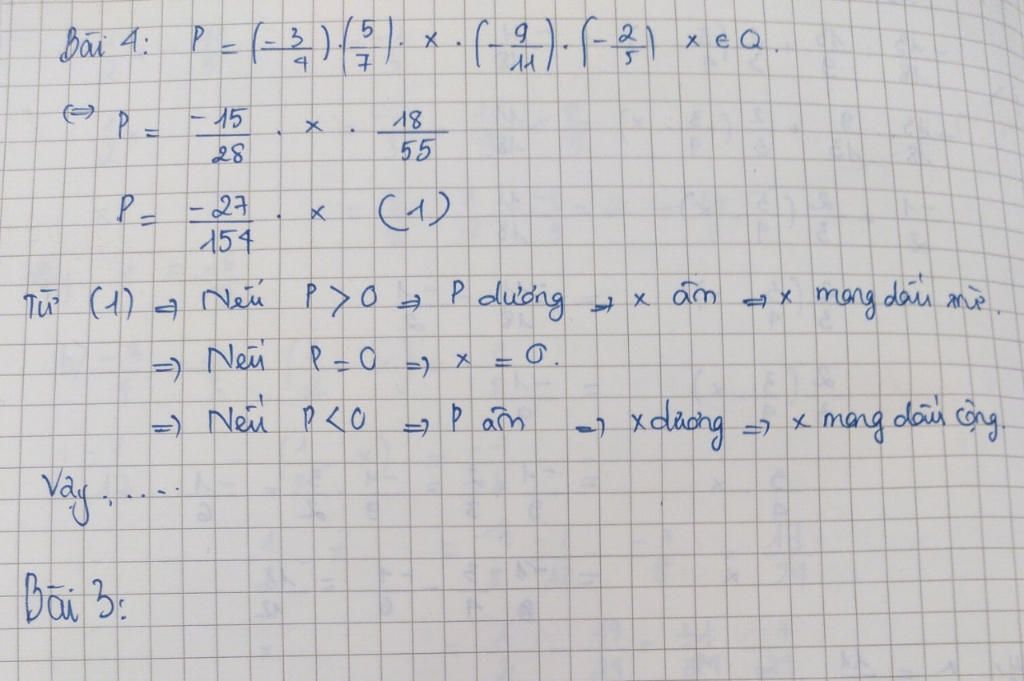 Bài 4: P = (-3/4).(5/7). x . (-9/11).(-2/5) x ∈ Q.
⇔ P = -15/28 . x . 18/55
P = -27/154 . x (1)
Từ (1) ⇒ Nếu P > 0 ⇒ P dương ⇒ x âm ⇒ x mang dấu trừ.
⇒ Nếu P = 0 ⇒ x = 0.
⇒ Nếu P < 0 ⇒ P âm ⇒ x dương ⇒ x mang dấu cộng.
Vậy .....
Bài 3: